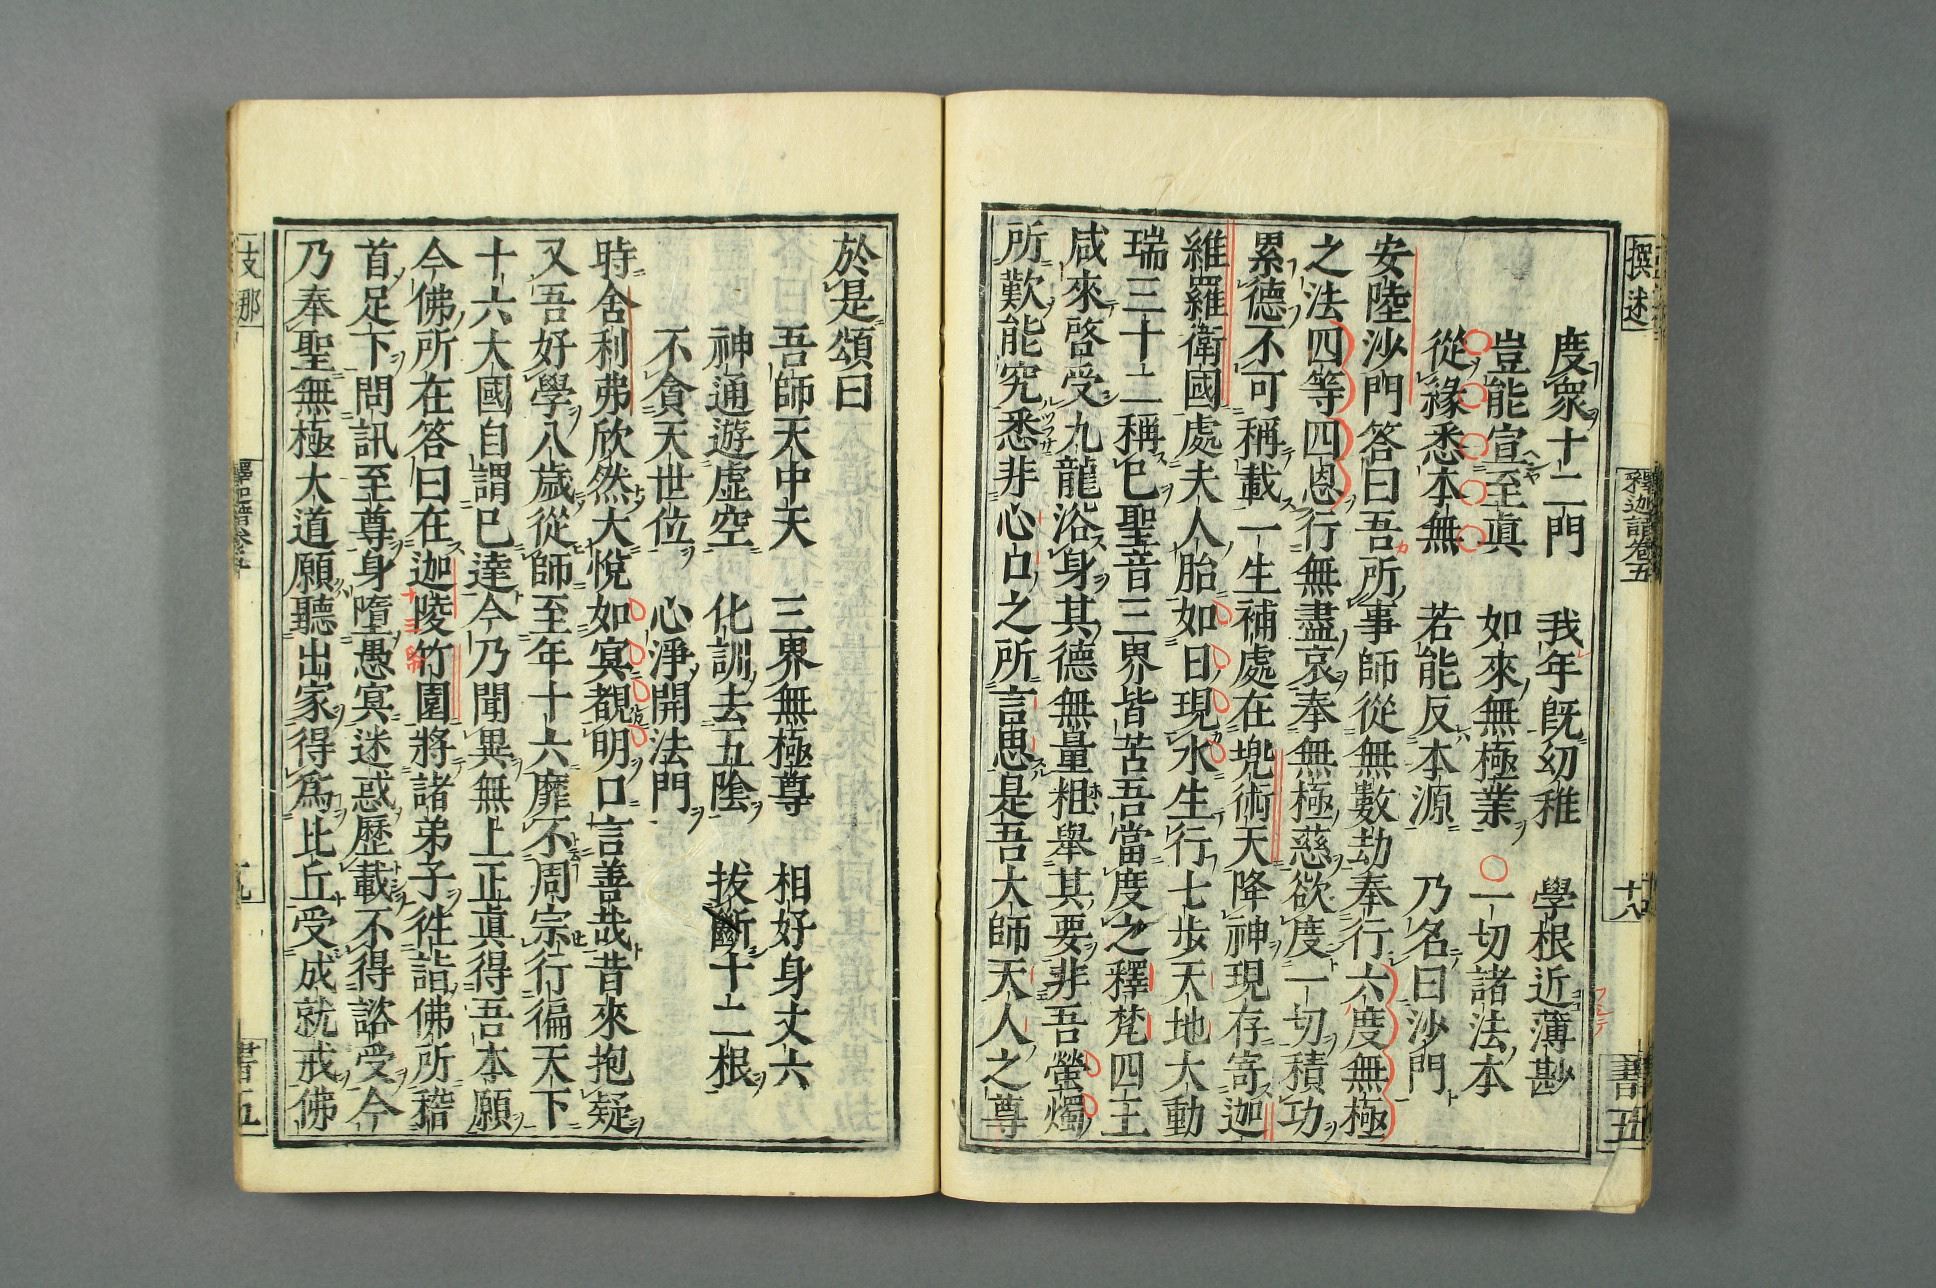 撰述
釋迦譜卷五
十八
書五
度衆十二門　我年旣幼稚　學根近薄尠
豈能宣至眞　如來無極業　一切諸法本
從緣悉本無　若能反本源　乃名曰沙門
安陸沙門答曰吾所事師從無數劫奉行六度無極
之法四等四恩行無盡哀奉無極慈欲度一切積功
累德不可稱載一生補處在兜術天降神現存寄迦
維羅衛國處夫人胎如日現水生行七步天地大動
瑞三十二稱已聖音三界皆苦吾當度之釋梵四王
咸來啓受九龍浴身其德無量粗舉其要非吾螢燭
所歎能究悉非心口之所言思是吾大師天人之尊
於是頌曰
吾師天中天　三界無極尊　相好身丈六
神通遊虛空　化訓去五陰　拔斷十二根
不貪天世位　心淨開法門
時舍利弗欣然大悅如冥覩明口言善哉昔來抱疑
又吾好學八歲從師至年十六靡不周宗行徧天下
十六大國自謂已達今乃聞異無上正眞得吾本願
今佛所在答曰在迦陵竹園將諸弟子往詣佛所稽
首足下問訊至尊身墮愚冥迷惑歷載不得諮受今
乃奉聖無極大道願聽出家得爲比丘受成就戒佛
支那
書五